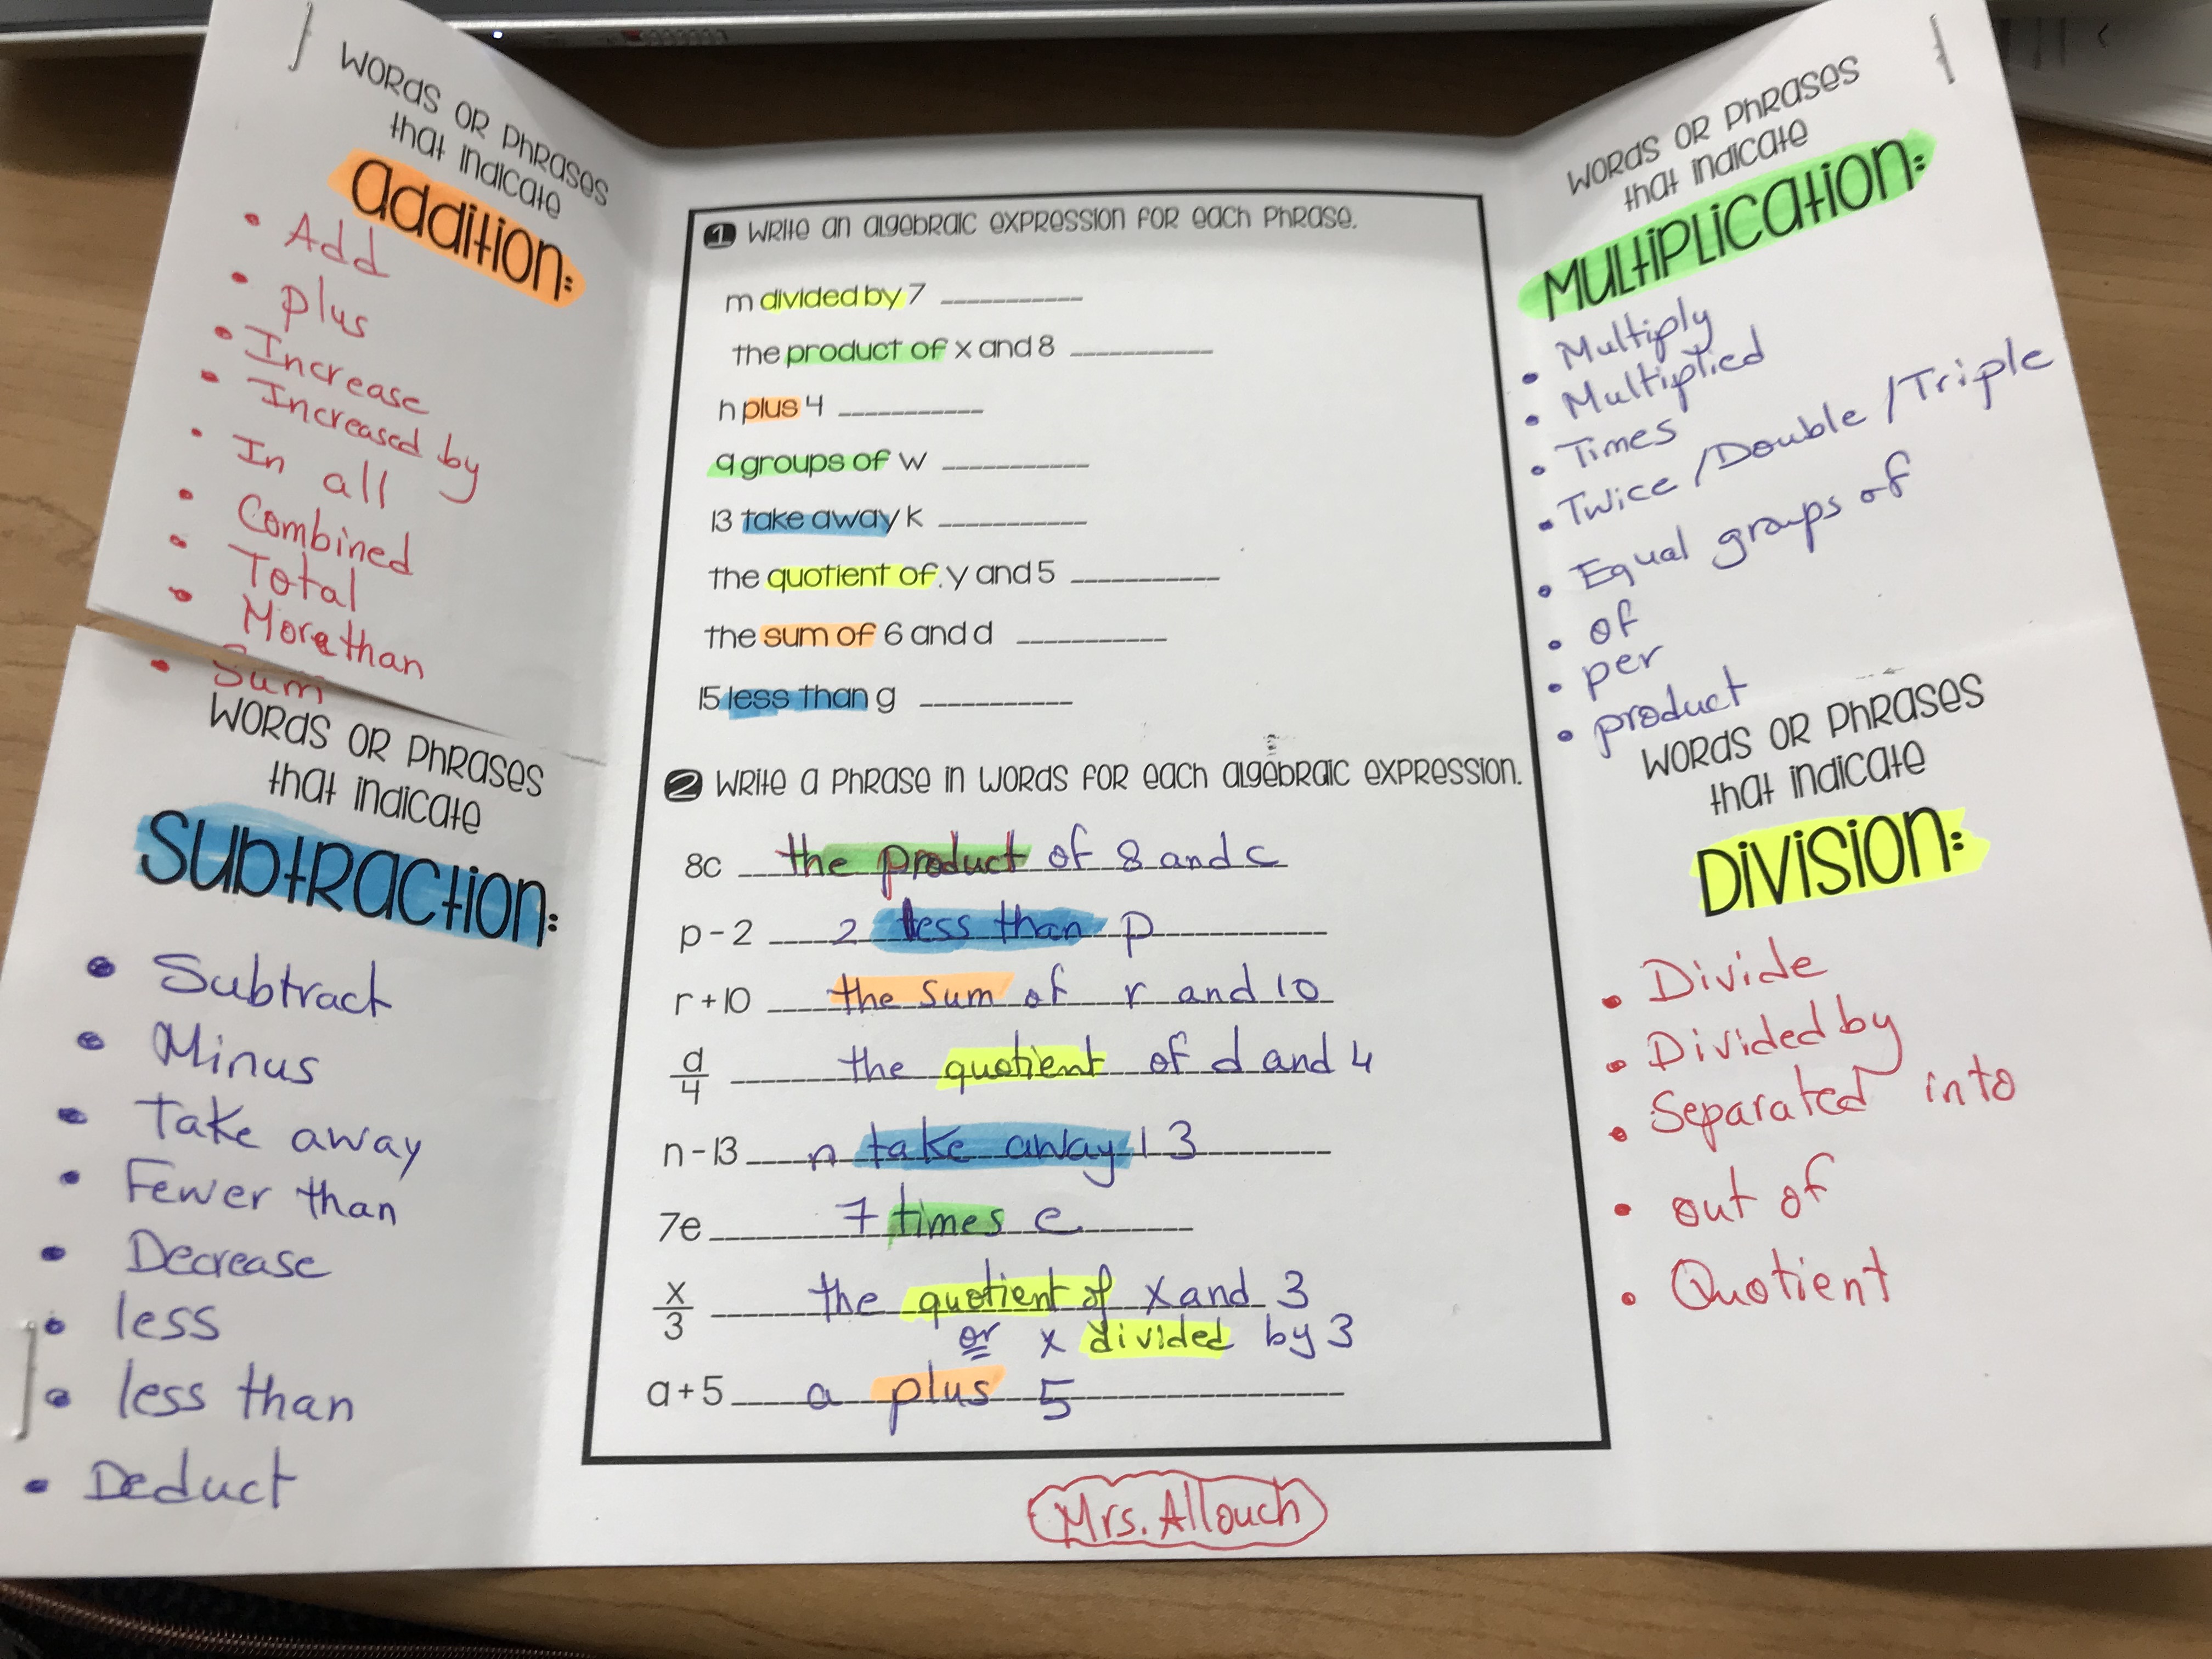 WORDS OR PHRASES
that indicate
addition:
• Add
• plus
• Increase
• Increased by
• In all
• Combined
• Total
• More than
• Sum
WORDS OR PHRASES
that indicate
SUBTRACTION:
• Subtract
• Minus
• Take away
• Fewer than
• Decrease
• less
• less than
• Deduct
1 WRITE AN ALGEBRAIC EXPRESSION FOR EACH PHRASE.
m divided by 7 ___________
the product of x and 8 ___________
n plus 4 ___________
9 groups of w ___________
13 take away k ___________
the quotient of y and 5 ___________
the sum of 6 and d ___________
15 less than g ___________
2 WRITE A PHRASE IN WORDS FOR EACH ALGEBRAIC EXPRESSION.
8c the product of 8 and c
p - 2 2 less than p
r + 10 the sum of r and 10
d/4 the quotient of d and 4
n - 13 n take away 13
7e 7 times e
x/3 the quotient of x and 3
or x divided by 3
a + 5 a plus 5
Mrs. Allouch
WORDS OR PHRASES
that indicate
MULTIPLICATION:
• Multiply
• Multiplied
• Times
• Twice / Double / Triple
• Equal groups of
• of
• per
• product
WORDS OR PHRASES
that indicate
DIVISION:
• Divide
• Divided by
• Separated into
• out of
• Quotient